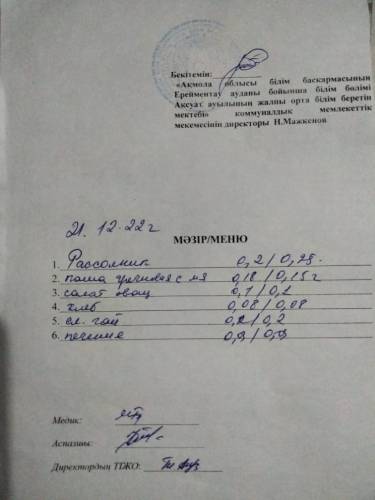 Бекітемін:
«Ақмола облысы білім басқармасының
Ерейментау ауданы бойынша білім бөлімі
Ақсуат ауылының жалпы орта білім беретін
мектебі» коммуналдық мемлекеттік
мекемесінің директоры Н.Мажкенов
21.12.22 г
МӘЗІР/МЕНЮ
1. Рассольник 0,2/0,25
2. каша гречневая с мя 0,18/0,15 г
3. салат овощ 0,1/0,1
4. хлеб 0,08/0,08
5. сл. чай 0,2/0,2
6. печенье
Медик:
Аспазшы:
Директордың ТІЖО: